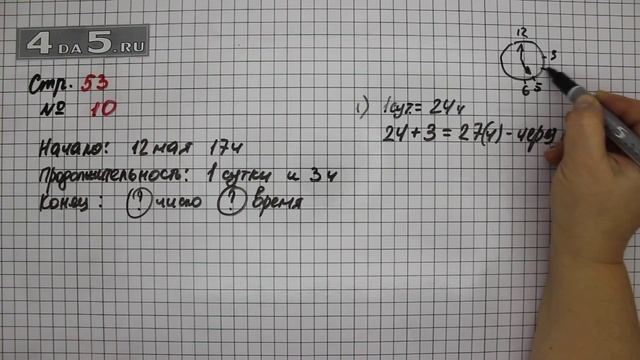 4DA5.RU
Стр. 53
№ 10
Начало: 12 мая 17ч
Продолжительность: 1 сутки и 3ч
Конец: ? число ? время
1) 1сут. = 24ч
24 + 3 = 27(ч) - через
12
3
6 5